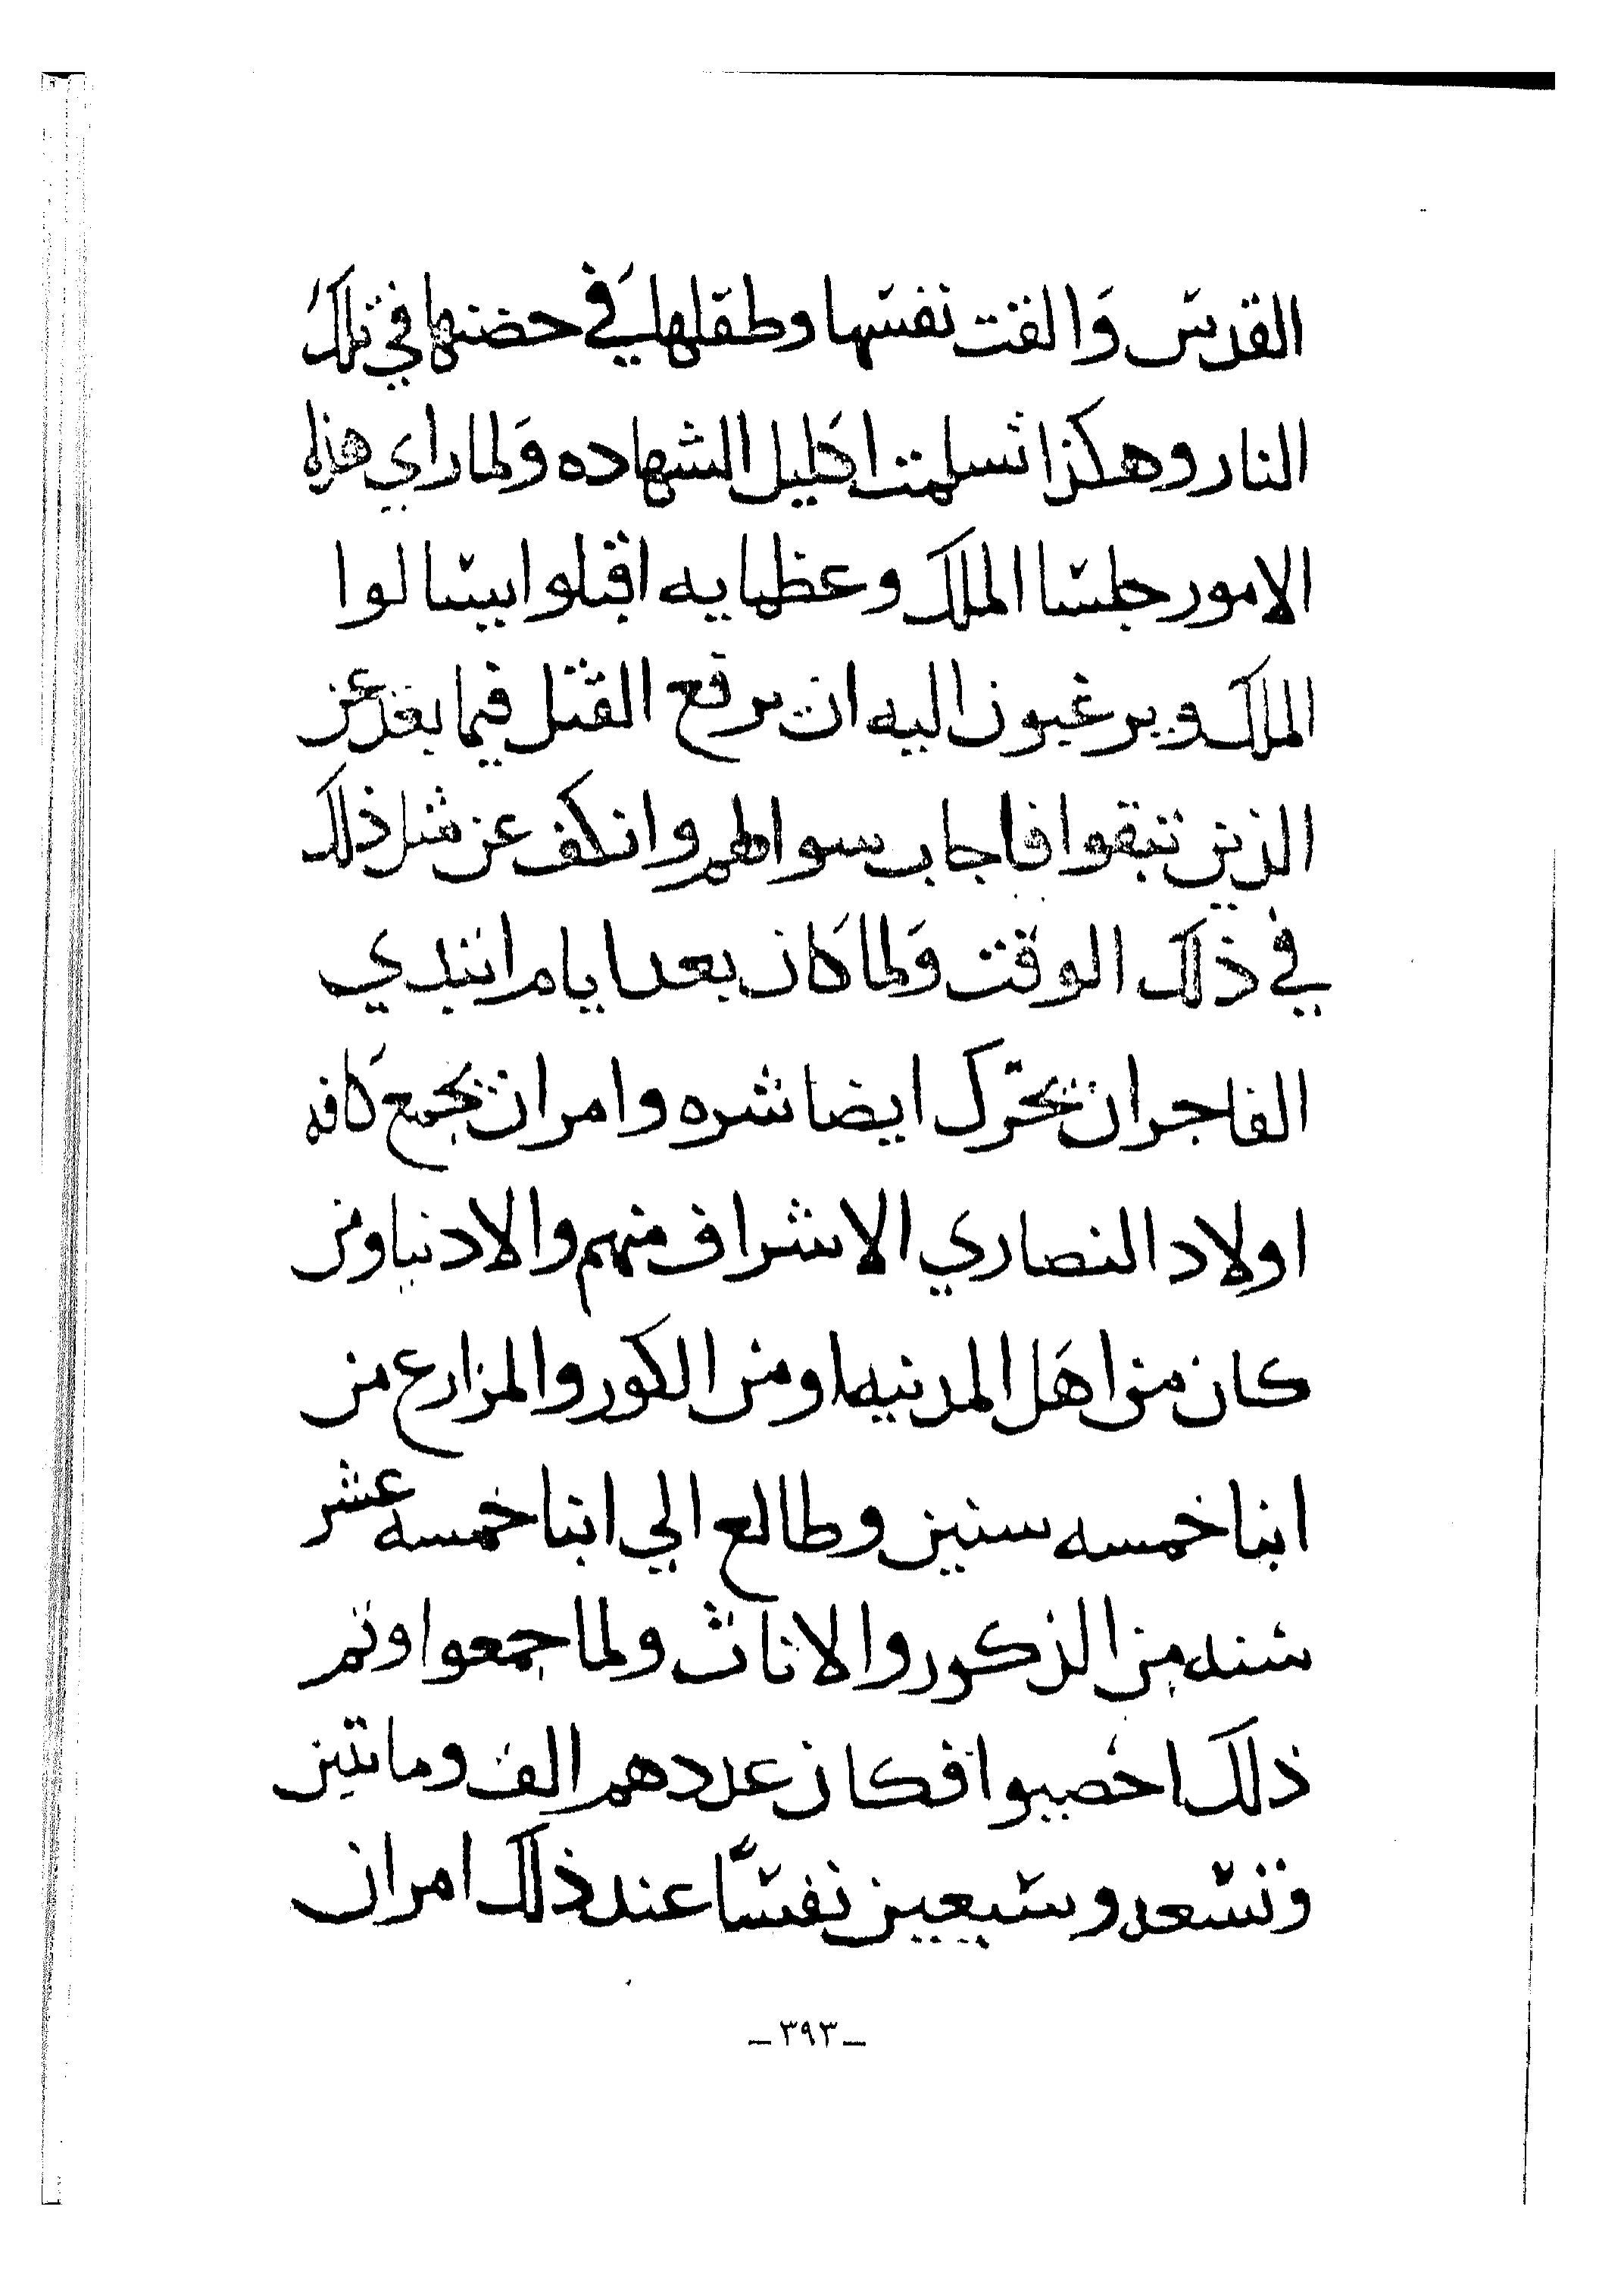 القدس والقت نفسها وطفلها في حضنها في تلك
النار وهكذا تسلمت اكليل الشهاده ولما راي هذه
الامور جلسا الملك وعظمايه اقبلوا يسالوا
الملك ويرغبون اليه ان يرفع القتل فيما بعد عن
الذين تبقوا فاجاب سوالهم وانكف عن مثل ذلك
في ذلك الوقت ولما كان بعد ايام ابتدي
الفاجر ان يحرك ايضا شره وامر ان يجمع كافه
اولاد النصاري الاشراف منهم والادنيا ومن
كان من اهل المدينه ومن الكور والمزارع من
ابنا خمسه سنين وطالع الي ابنا خمسه عشر
سنه من الذكور والاناث ولما جمعوا وتم
ذلك احصيوا فكان عددهم الف ومايتين
وتسعه وسبعين نفسًا عند ذلك امر ان
ـ ٣٩٣ ـ